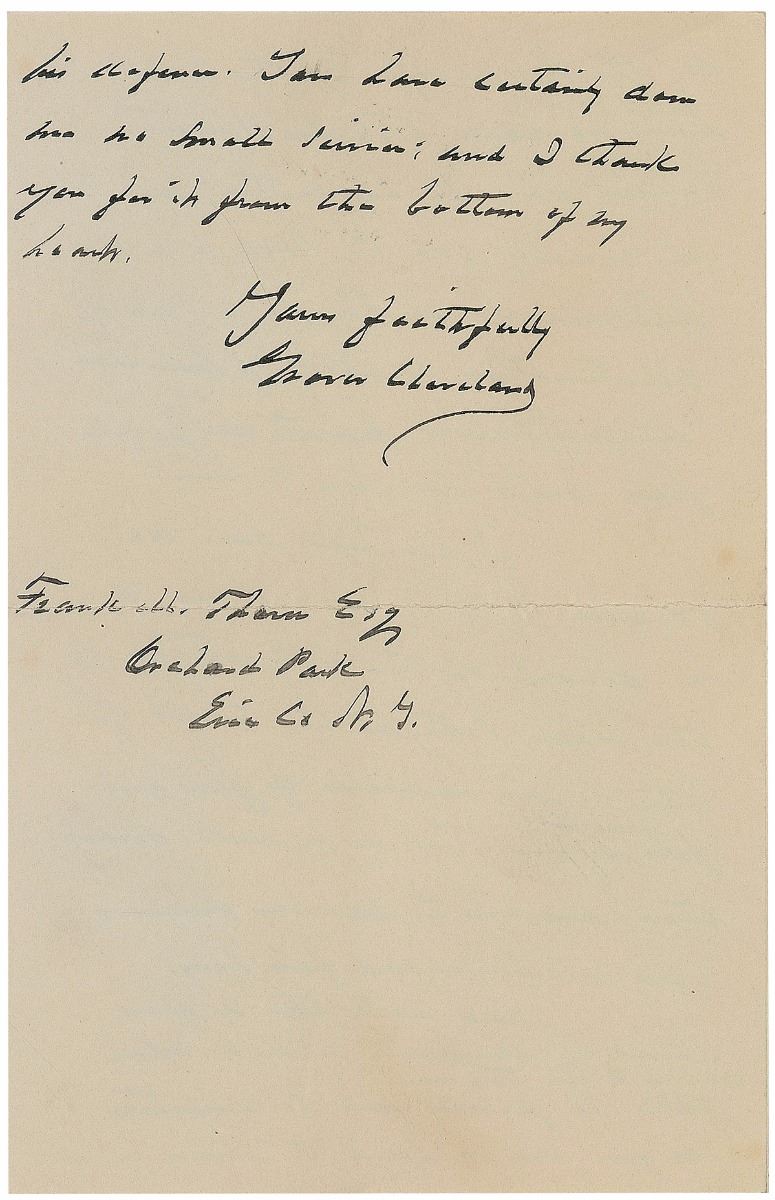 his defense. You have certainly done
me no small service; and I thank
you for it from the bottom of my
heart.
Yours faithfully
Grover Cleveland
Frank M. Thorn Esq
Orchard Park
Erie Co N. Y.